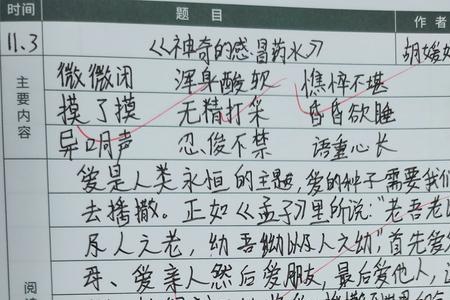 时间 题目 作者
11.3 《神奇的感冒药水》 胡媛
主要内容
微微闭 浑身酸软 憔悴不堪
摸了摸 无精打采 昏昏欲睡
异口同声 忍俊不禁 语重心长
爱是人类永恒的主题,爱的种子需要我们
去播撒。正如《孟子》里所说:"老吾老以
及人之老,幼吾幼以及人之幼"首先爱
母、爱亲人然后爱朋友,最后爱他人,
阅